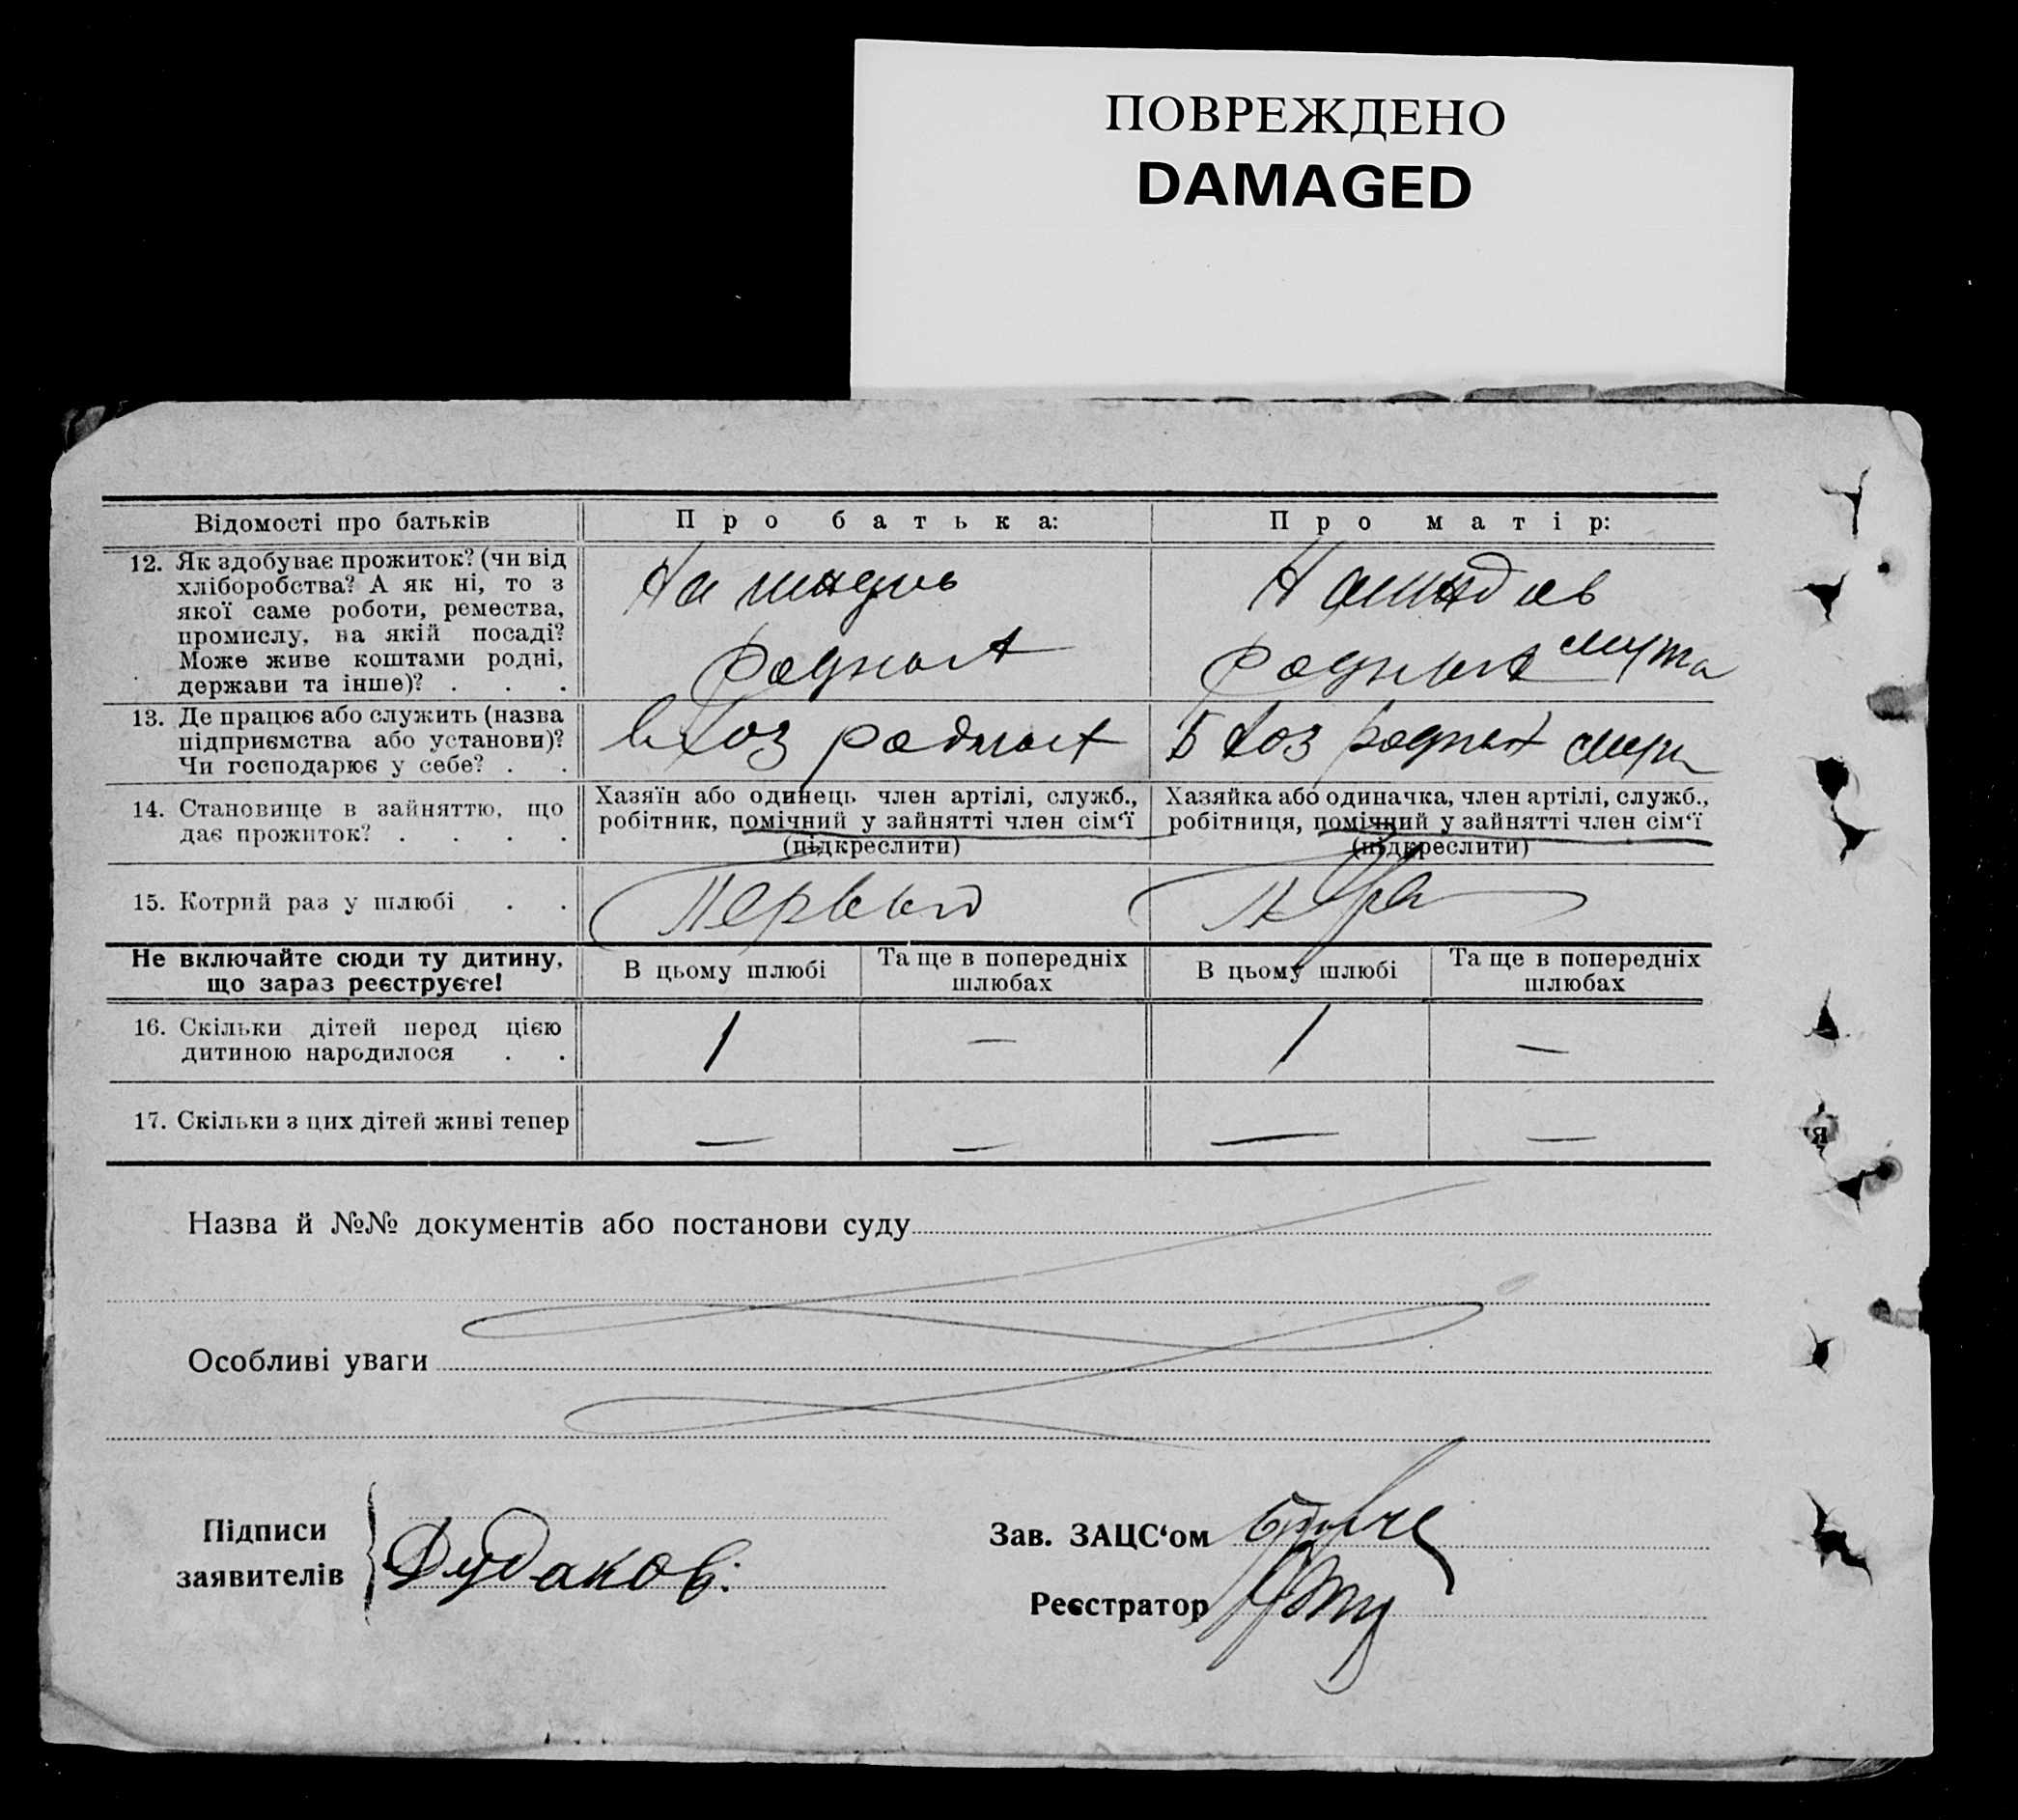 ПОВРЕЖДЕНО
DAMAGED
Відомості про батьків
Про батька:
Про матір:
12. Як здобуває прожиток? (чи від
хліборобства? А як ні, то з
якої саме роботи, ремества,
промислу, на якій посаді?
Може живе коштами родні,
держави та інше)? . . .
На
родных
родных мужа
13. Де працює або служить (назва
підприємства або установи)?
Чи господарює у себе? . .
в хоз родных
В хоз родных
14. Становище в зайняттю, що
дає прожиток? . . . .
Хазяїн або одинець член артілі, служб.,
робітник, помічний у зайнятті член сім‘ї
(підкреслити)
Хазяйка або одиначка, член артілі, служб.,
робітниця, помічний у зайнятті член сім‘ї
(підкреслити)
15. Котрий раз у шлюбі . .
Первый
Не включайте сюди ту дитину,
що зараз реєструєте!
В цьому шлюбі
Та ще в попередніх
шлюбах
В цьому шлюбі
Та ще в попередніх
шлюбах
16. Скільки дітей перед цією
дитиною народилося . .
1
—
1
—
17. Скільки з цих дітей живі тепер
—
—
—
—
Назва й №№ документів або постанови суду
Особливі уваги
Підписи
заявителів
Дудаков.
Зав. ЗАЦС‘ом
Реєстратор